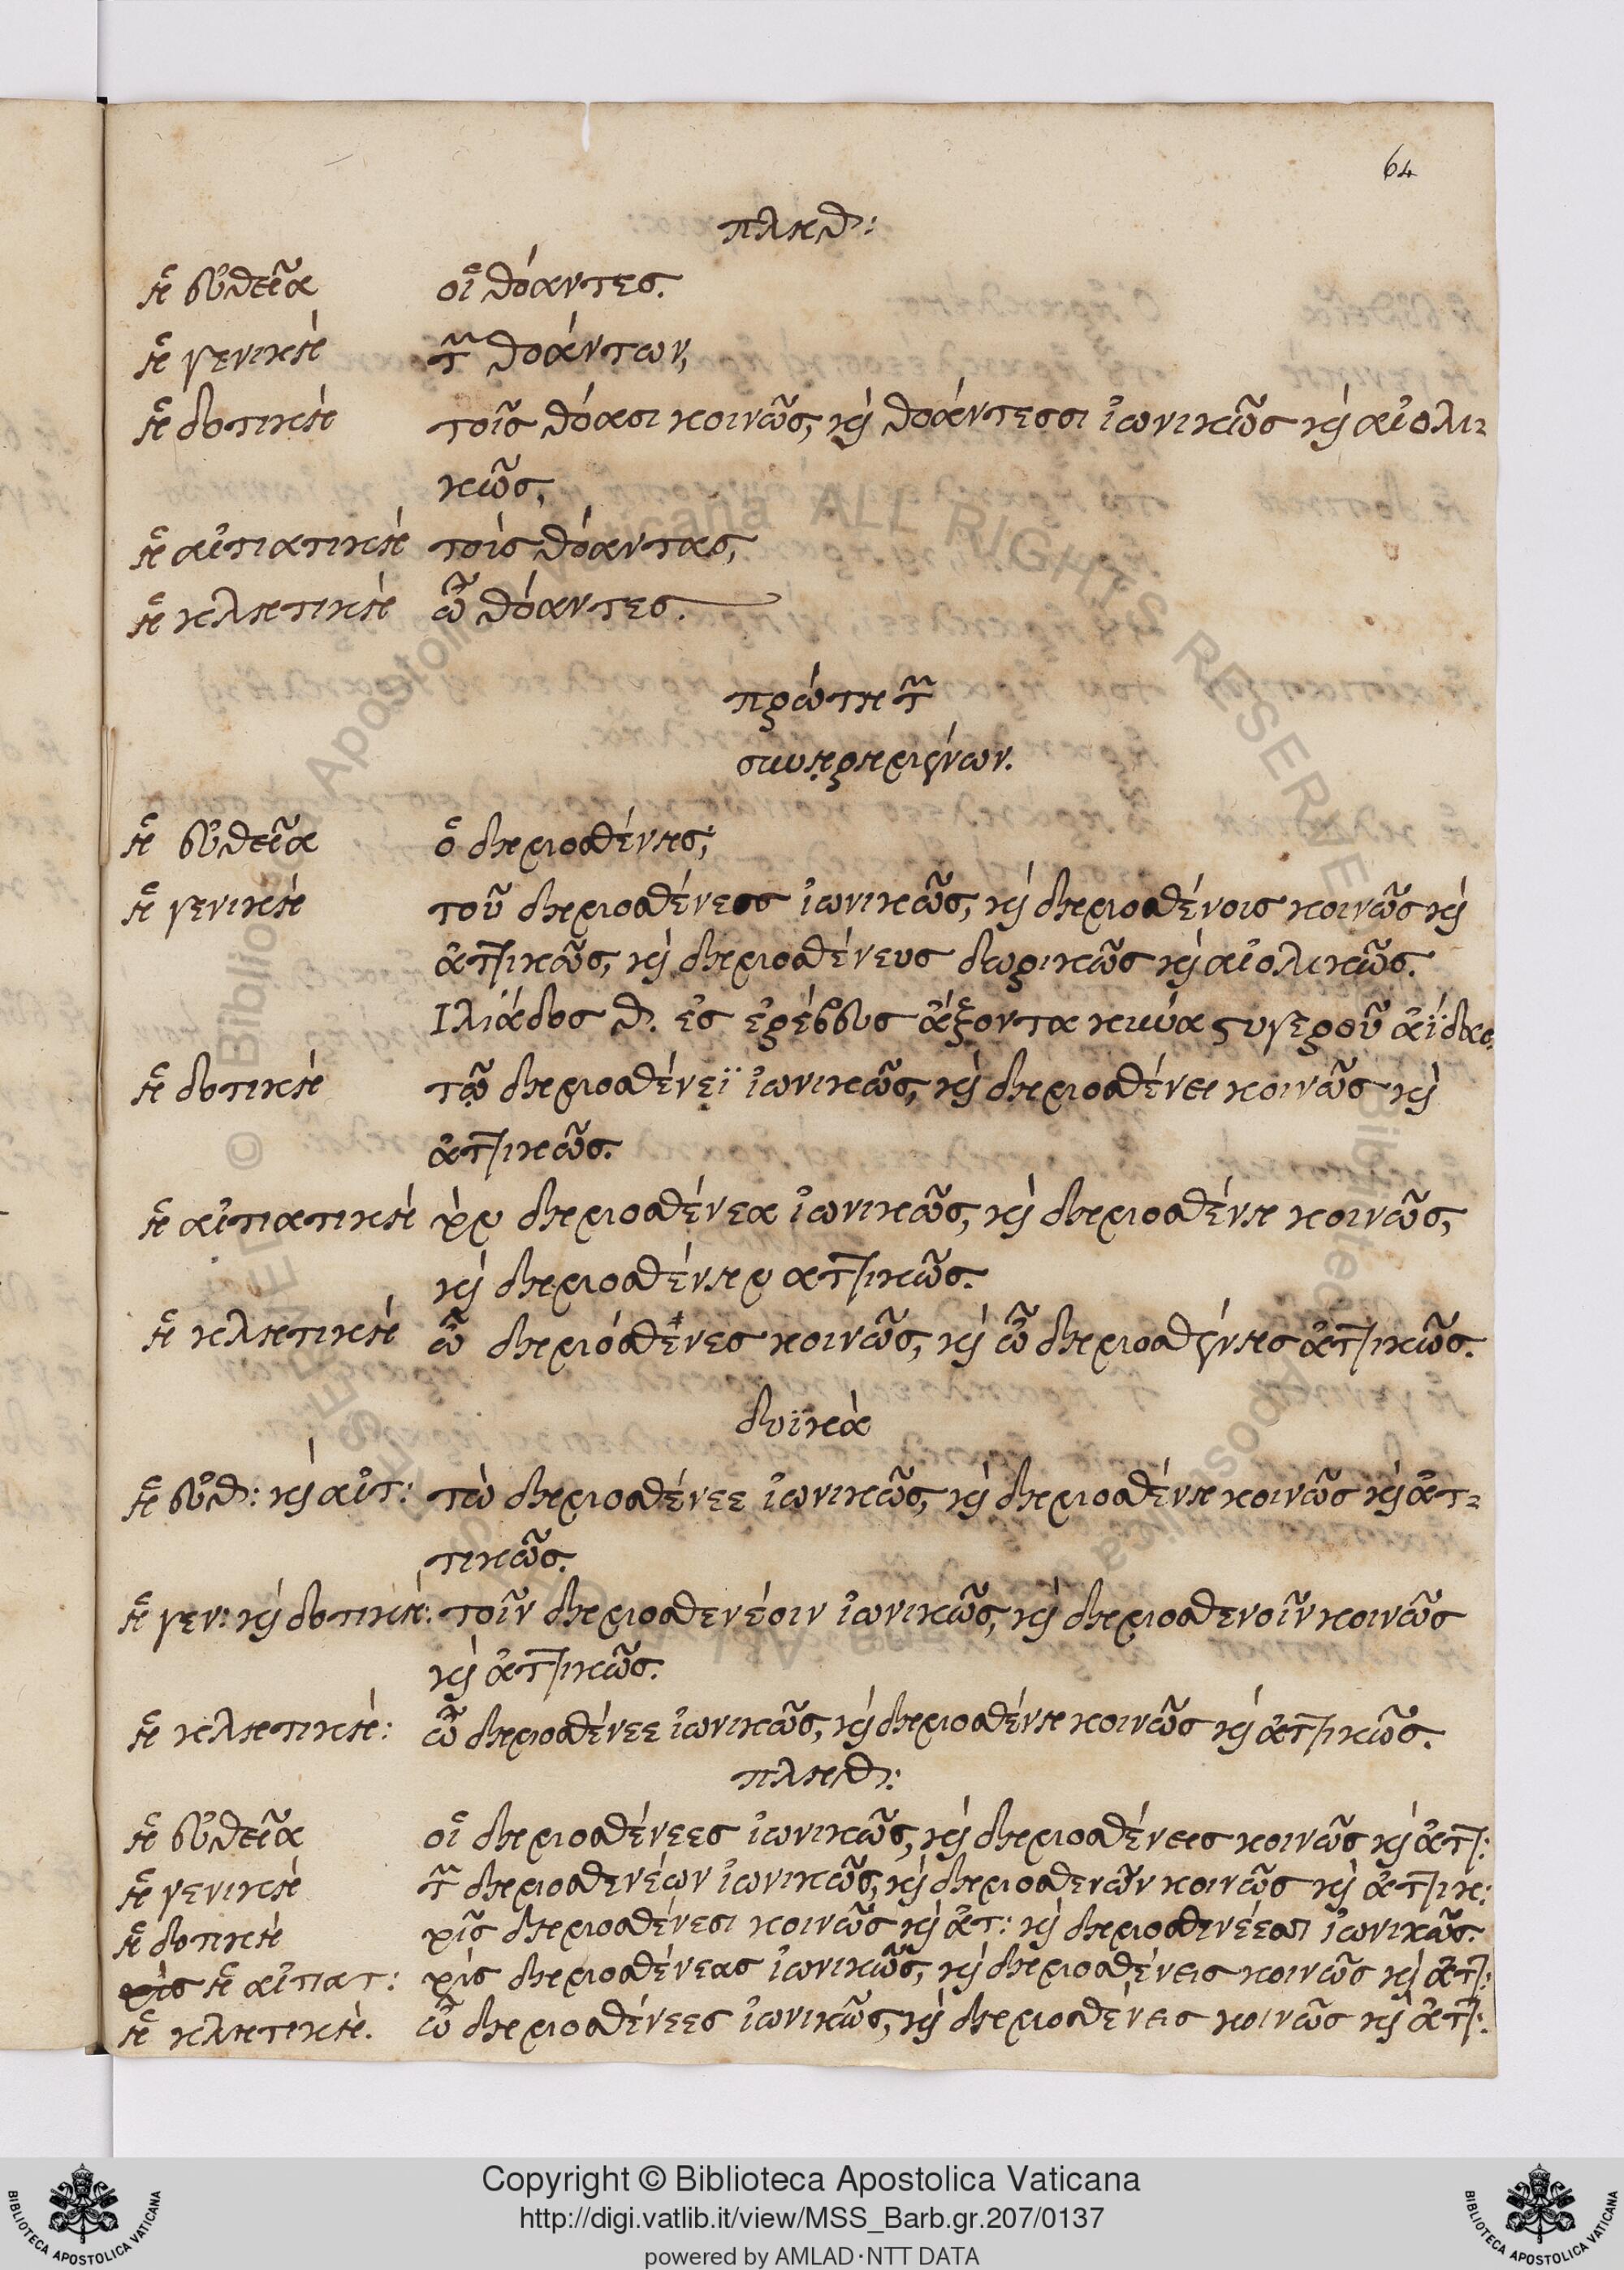 64
πληθ:
ἡ εὐθεῖα οἱ θόαντες.
ἡ γενικὴ τῶν θοάντων,
ἡ δοτικὴ τοῖς θόασι κοινῶς, καὶ θοάντεσσι ἰωνικῶς καὶ αἰολι-
κῶς,
ἡ αἰτιατικὴ τοὺς θόαντας,
ἡ κλητικὴ ὦ θόαντες.
πρώτη τῶν
συνῃρημένων.
ἡ εὐθεῖα ὁ δημοσθένης,
ἡ γενικὴ τοῦ δημοσθένεος ἰωνικῶς, καὶ δημοσθένους κοινῶς καὶ
ἀττικῶς, καὶ δημοσθένευς δωρικῶς καὶ αἰολικῶς.
Ιλιάδος θ. ἐς ἐρέβευς ἄξοντα κύνα στυγεροῦ ἀΐδαο.
ἡ δοτικὴ τῷ δημοσθένεϊ ἰωνικῶς, καὶ δημοσθένει κοινῶς καὶ
ἀττικῶς.
ἡ αἰτιατικὴ τὸν δημοσθένεα ἰωνικῶς, καὶ δημοσθένη κοινῶς,
καὶ δημοσθένην ἀττικῶς.
ἡ κλητικὴ ὦ δημόσθενες κοινῶς, καὶ ὦ δημοσθένης ἀττικῶς.
δυϊκὰ
ἡ εὐθ: καὶ αἰτ: τὼ δημοσθένεε ἰωνικῶς, καὶ δημοσθένη κοινῶς καὶ ἀτ-
τικῶς.
ἡ γεν: καὶ δοτικὴ: τοῖν δημοσθενέοιν ἰωνικῶς, καὶ δημοσθενοῖν κοινῶς
καὶ ἀττικῶς.
ἡ κλητικὴ: ὦ δημοσθένεε ἰωνικῶς, καὶ δημοσθένη κοινῶς καὶ ἀττικῶς.
πληθ:
ἡ εὐθεῖα οἱ δημοσθένεες ἰωνικῶς, καὶ δημοσθένεις κοινῶς καὶ ἀττ:
ἡ γενικὴ τῶν δημοσθενέων ἰωνικῶς, καὶ δημοσθενῶν κοινῶς καὶ ἀττικ:
ἡ δοτικὴ τοῖς δημοσθένεσι κοινῶς καὶ ἀτ: καὶ δημοσθενέεσσι ἰωνικῶς.
ἡ αἰτιατ: τοὺς δημοσθένεας ἰωνικῶς, καὶ δημοσθένεις κοινῶς καὶ ἀττ:
ἡ κλητικὴ. ὦ δημοσθένεες ἰωνικῶς, καὶ δημοσθένεις κοινῶς καὶ ἀττ:
© Biblioteca Apostolica Vaticana ALL RIGHTS RESERVED
Copyright © Biblioteca Apostolica Vaticana
http://digi.vatlib.it/view/MSS_Barb.gr.207/0137
powered by AMLAD·NTT DATA
BIBLIOTECA APOSTOLICA VATICANA
BIBLIOTECA APOSTOLICA VATICANA